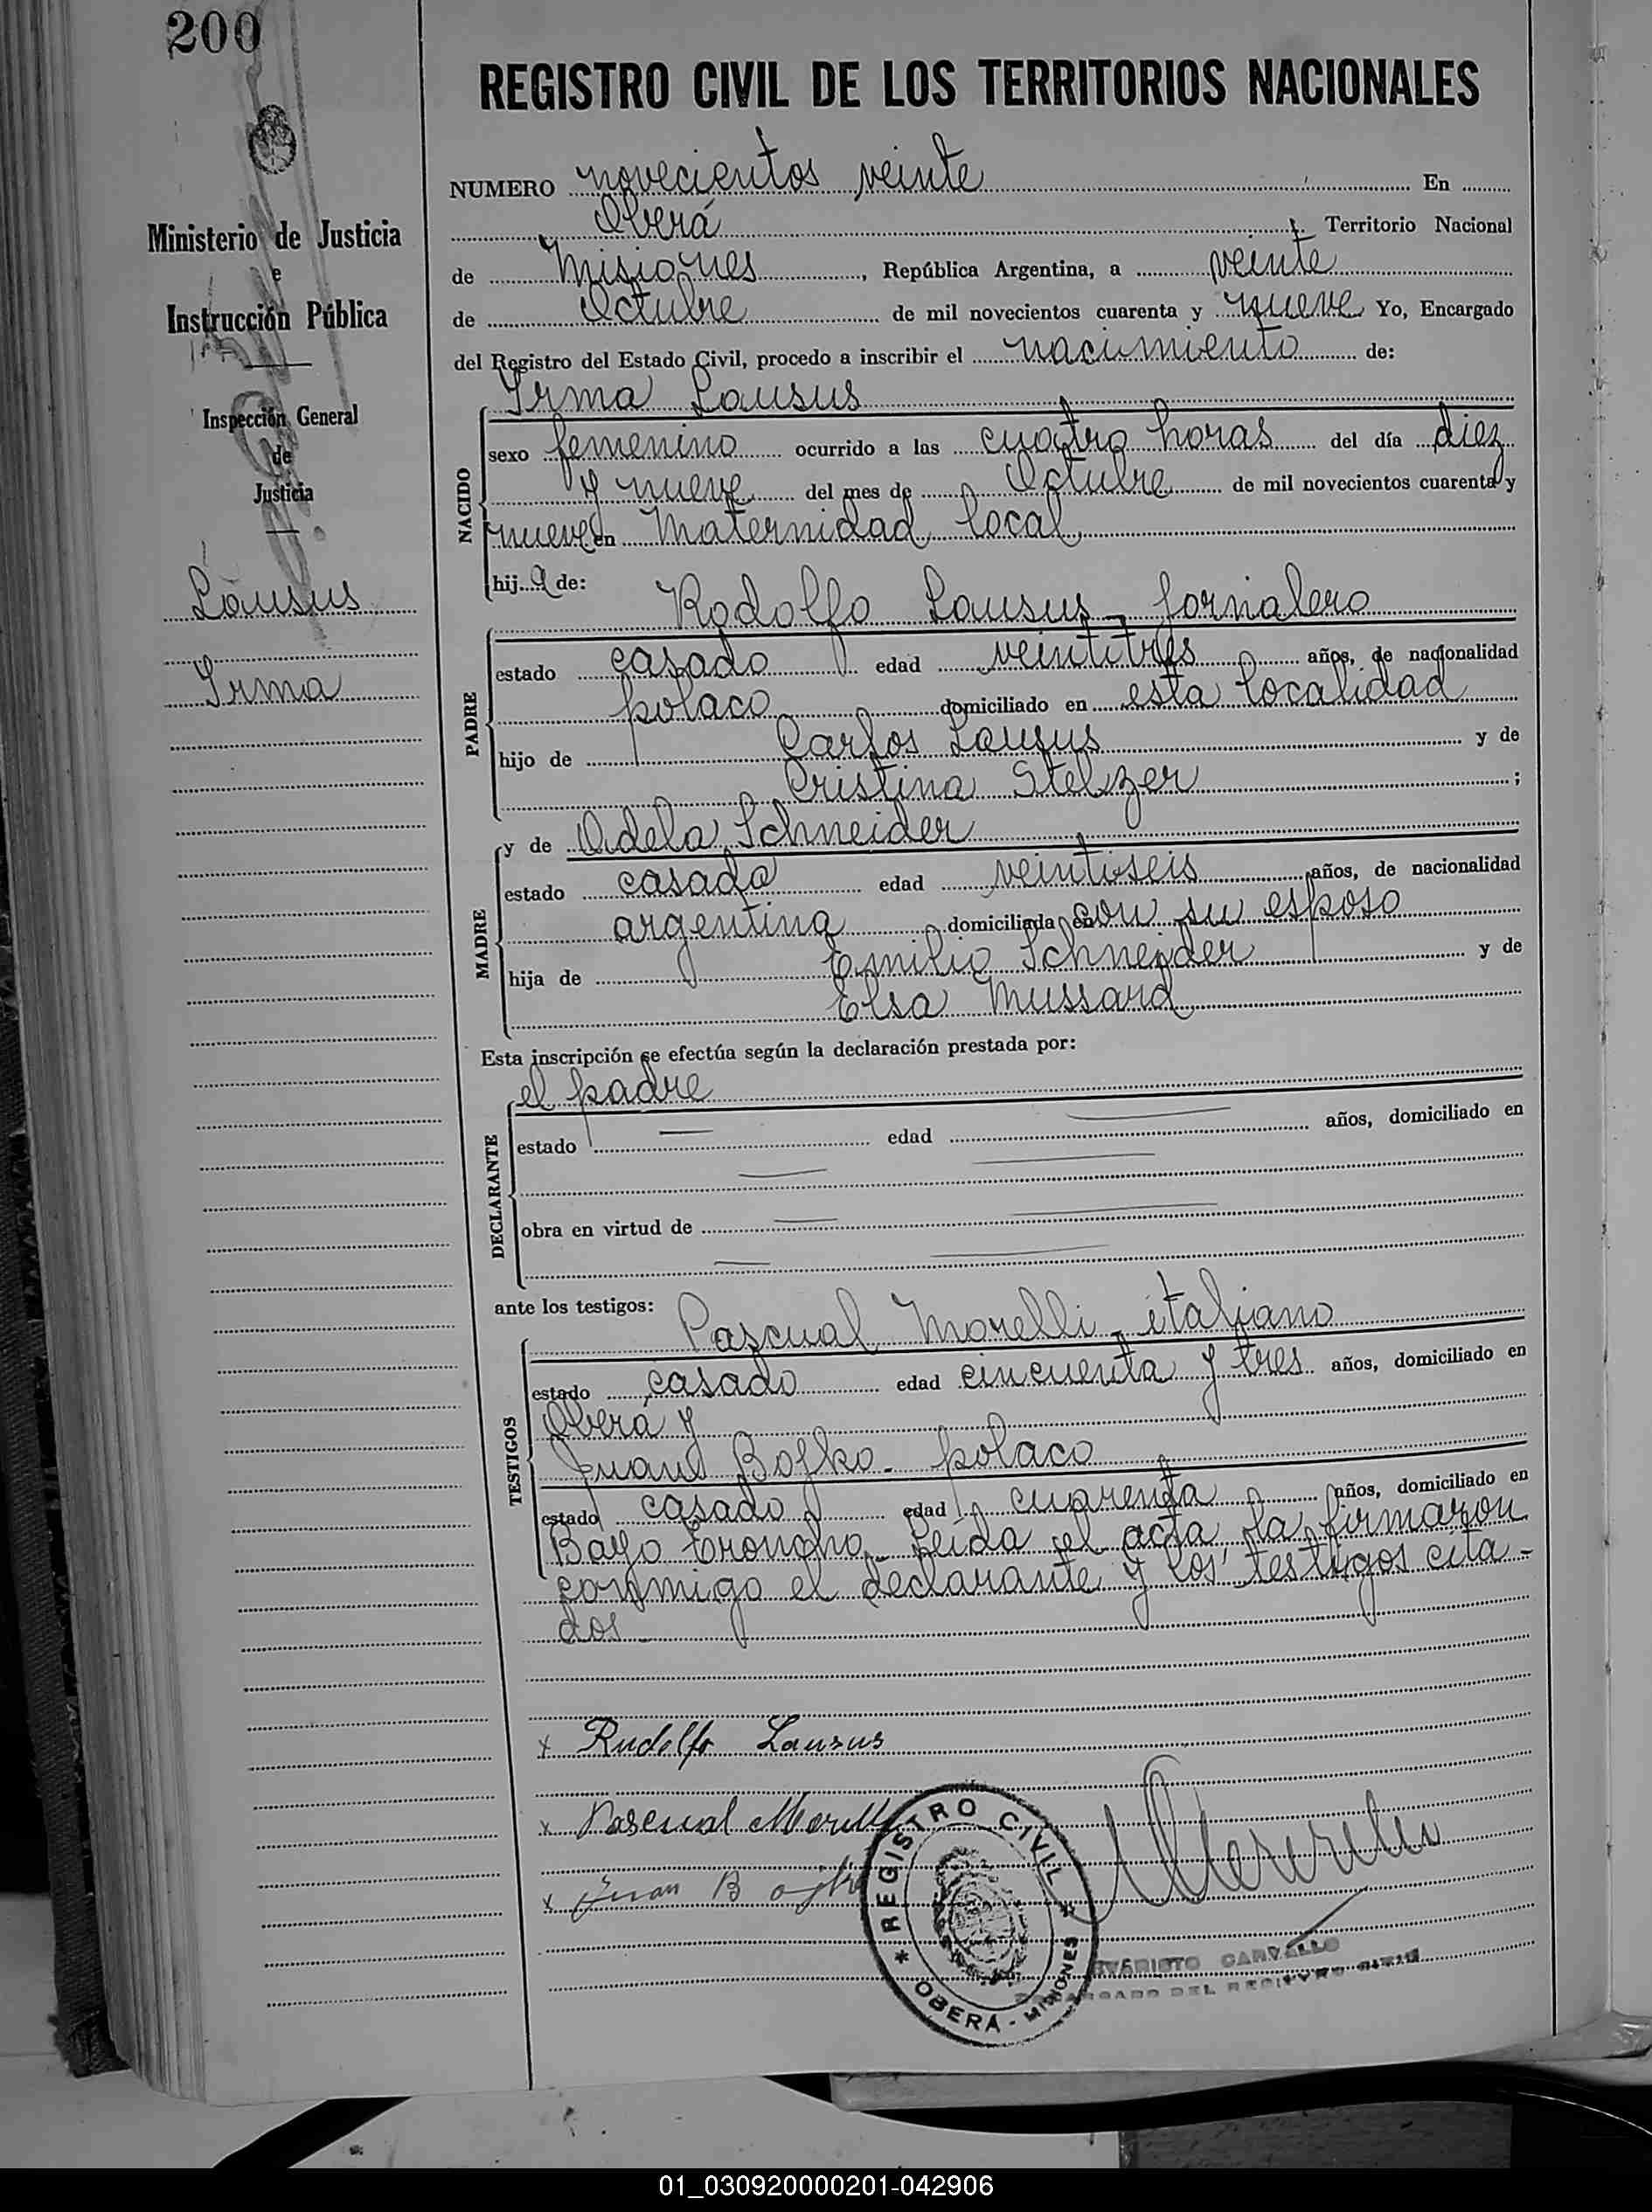 200
REGISTRO CIVIL DE LOS TERRITORIOS NACIONALES
Ministerio de Justicia
e
Instrucción Pública
Inspección General
de
Justicia
Lausus
Irma
NUMERO novecientos veinte En
Oberá Territorio Nacional
de Misiones, República Argentina, a veinte
de Octubre de mil novecientos cuarenta y nueve Yo, Encargado
del Registro del Estado Civil, procedo a inscribir el nacimiento de:
Irma Lausus
NACIDO
sexo femenino ocurrido a las cuatro horas del día diez
y nueve del mes de Octubre de mil novecientos cuarenta y
nueve en Maternidad local
hija de:
Rodolfo Lausus - jornalero
PADRE
estado casado edad veintitres años, de nacionalidad
polaco domiciliado en esta localidad
hijo de Carlos Lausus y de
Cristina Stelzer ;
y de Adela Schneider
MADRE
estado casada edad veintiseis años, de nacionalidad
argentina domiciliada en con su esposo
hija de Emilio Schneider y de
Elsa Mussard
Esta inscripción se efectúa según la declaración prestada por:
el padre
DECLARANTE
estado — edad — años, domiciliado en
— —
obra en virtud de — —
— —
ante los testigos:
Pascual Morelli - italiano
TESTIGOS
estado casado edad cincuenta y tres años, domiciliado en
Oberá y
Juan Bojko - polaco
estado casado edad cuarenta años, domiciliado en
Bayo Troncho - Leída el acta la firmaron
conmigo el declarante y los testigos cita-
dos -
x Rudolfo Lausus
x Pascual Morelli
x Juan
REGISTRO CIVIL
OBERÁ - MISIONES
EVARISTO CARVALLO
ENCARGADO DEL REGISTRO CIVIL
01_030920000201-042906